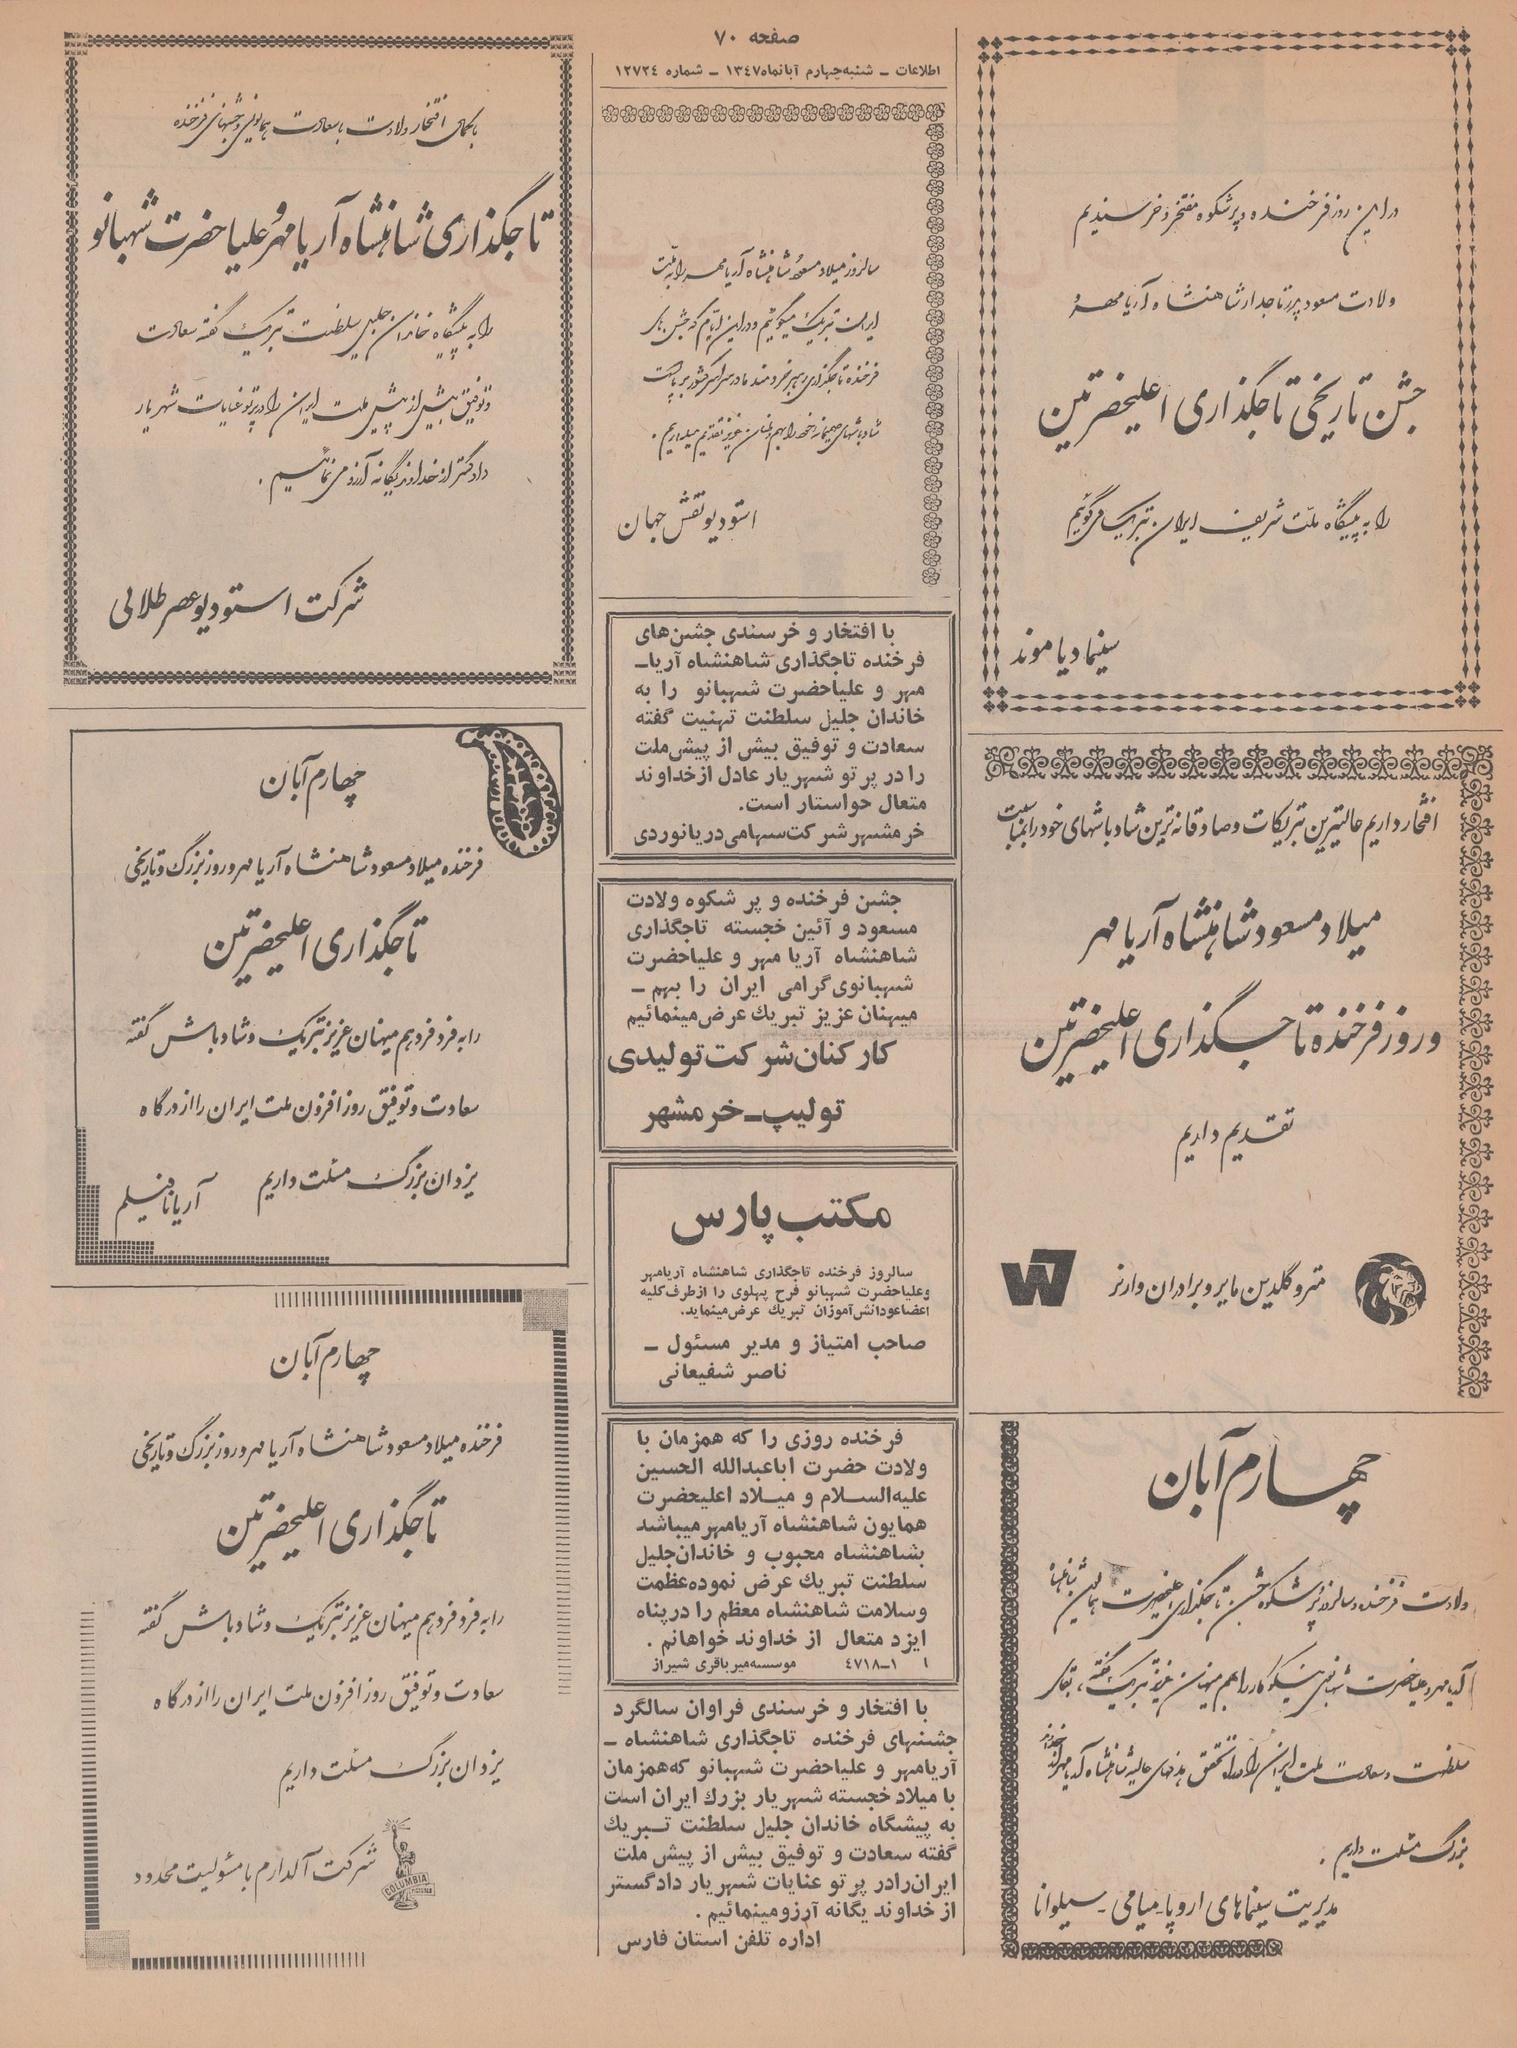 صفحه ۷۰
اطلاعات ـ شنبه چهارم آبانماه ۱۳۴۷ ـ شماره ۱۲۷۲۴
در این روز فرخنده و پر شکوه مفتخر و خرسندیم
ولادت مسعود پدر تاجدار شاهنشاه آریامهر و
جشن تاریخی تاجگذاری اعلیحضرتین
را به پیشگاه ملت شریف ایران تبریک می گوئیم
سینما دیاموند
افتخار داریم عالیترین تبریکات و صادقانه ترین شادباشهای خود را بمناسبت
میلاد مسعود شاهنشاه آریامهر
و روز فرخنده تاجگذاری اعلیحضرتین
تقدیم داریم
مترو گلدین مایر و برادران وارنر
W7
چهارم آبان
ولادت فرخنده و سالروز پرشکوه جشن تاجگذاری اعلیحضرت همایون شاهنشاه
آریامهر و علیاحضرت شهبانوی نیکوکار را به هم میهنان عزیز تبریک گفته، بقای
سلطنت و سعادت ملت ایران را در تحقق هدفهای عالیه شاهنشاه آریامهر از خداوند
بزرگ مسئلت داریم .
مدیریت سینماهای اروپا ـ میامی ـ سیلوانا
سالروز میلاد مسعود شاهنشاه آریامهر را به ملت
ایران تبریک میگوئیم و در این ایام که جشن های
فرخنده تاجگذاری رهبر خردمند ما در سراسر کشور برپاست
شادباشهای صمیمانه خود را بهموطنان عزیز تقدیم میداریم .
استودیو نقش جهان
با افتخار و خرسندی جشن‌های
فرخنده تاجگذاری شاهنشاه آریا-
مهر و علیاحضرت شهبانو را به
خاندان جلیل سلطنت تهنیت گفته
سعادت و توفیق بیش از پیش ملت
را در پرتو شهریار عادل از خداوند
متعال خواستار است.
خرمشهر شرکت سهامی دریانوردی
جشن فرخنده و پر شکوه ولادت
مسعود و آئین خجسته تاجگذاری
شاهنشاه آریا مهر و علیاحضرت
شهبانوی گرامی ایران را بهم -
میهنان عزیز تبریك عرض مینمائیم
کارکنان شرکت تولیدی
تولیپ ـ خرمشهر
مکتب پارس
سالروز فرخنده تاجگذاری شاهنشاه آریامهر
وعلیاحضرت شهبانو فرح پهلوی را ازطرف کلیه
اعضاء ودانش‌آموزان تبریك عرض مینماید.
صاحب امتیاز و مدیر مسئول -
ناصر شفیعانی
فرخنده روزی را که همزمان با
ولادت حضرت اباعبدالله الحسین
علیه‌السلام و میلاد اعلیحضرت
همایون شاهنشاه آریامهر میباشد
بشاهنشاه محبوب و خاندان جلیل
سلطنت تبریك عرض نموده عظمت
وسلامت شاهنشاه معظم را در پناه
ایزد متعال از خداوند خواهانم .
۱ ۱-۴۷۱۸ موسسه میرباقری شیراز
با افتخار و خرسندی فراوان سالگرد
جشنهای فرخنده تاجگذاری شاهنشاه -
آریامهر و علیاحضرت شهبانو که همزمان
با میلاد خجسته شهریار بزرگ ایران است
به پیشگاه خاندان جلیل سلطنت تبریك
گفته سعادت و توفیق بیش از پیش ملت
ایران رادر پرتو عنایات شهریار دادگستر
از خداوند یگانه آرزومینمائیم .
اداره تلفن استان فارس
با کمال افتخار ولادت با سعادت همایونی و جشنهای فرخنده
تاجگذاری شاهنشاه آریامهر و علیاحضرت شهبانو
را به پیشگاه خاندان جلیل سلطنت تبریک گفته سعادت
و توفیق بیش از پیش ملت ایران را در پرتو عنایات شهریار
دادگستر از خداوند یگانه آرزو می نمائیم .
شرکت استودیو عصر طلائی
چهارم آبان
فرخنده میلاد مسعود شاهنشاه آریامهر و روز بزرگ و تاریخی
تاجگذاری اعلیحضرتین
را به فرد فرد هم میهنان عزیز تبریک و شادباش گفته
سعادت و توفیق روز افزون ملت ایران را از درگاه
یزدان بزرگ مسئلت داریم
آریانا فیلم
چهارم آبان
فرخنده میلاد مسعود شاهنشاه آریامهر و روز بزرگ و تاریخی
تاجگذاری اعلیحضرتین
را به فرد فرد هم میهنان عزیز تبریک و شادباش گفته
سعادت و توفیق روز افزون ملت ایران را از درگاه
یزدان بزرگ مسئلت داریم
شرکت آلدارم با مسئولیت محدود
COLUMBIA
PICTURES